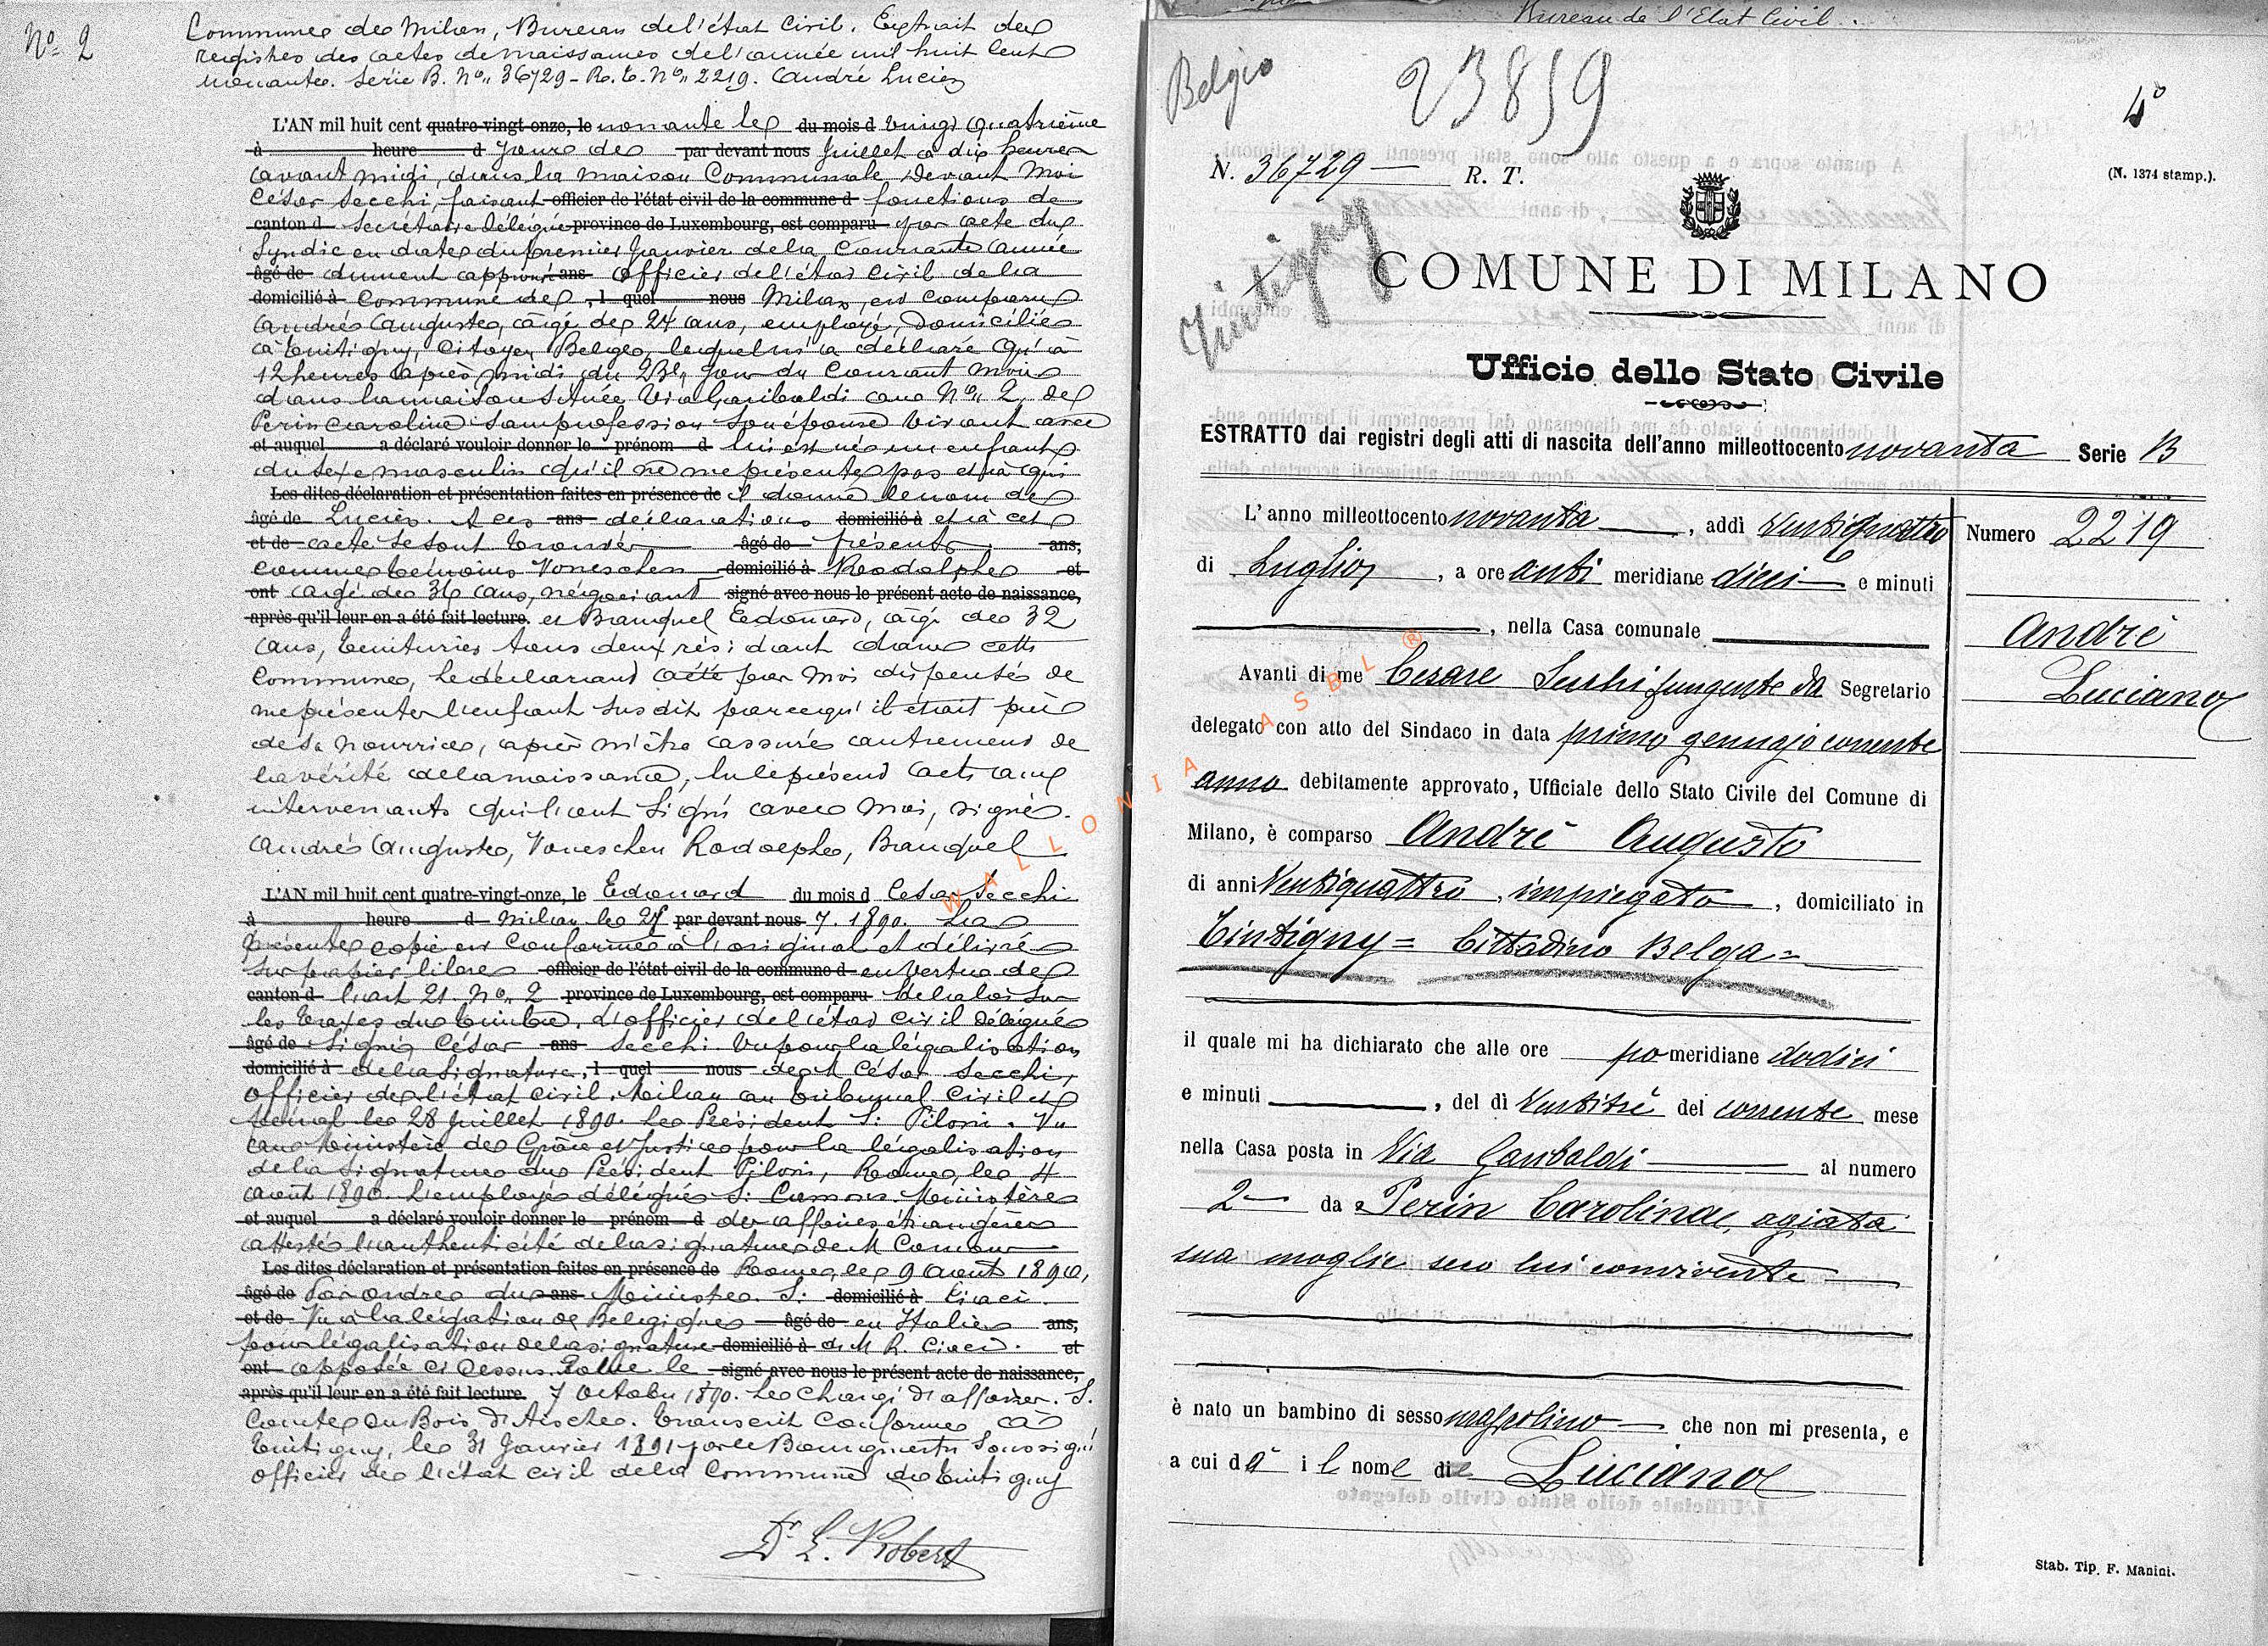 Nº 2
Commune de Milan, Bureau de l'état Civil. Extrait des
registres des actes de naissances de l'année mil huit Cent
nonante. Série B. Nº 36729 - R. E. Nº 2219. André Lucien
L'AN mil huit cent quatre-vingt-onze, le nonante le du mois d vingt quatrième
à heure d jour de par devant nous Juillet à dix heures
avant midi, dans la maison Communale Devant Moi
César Secchi, faisant officier de l'état civil de la commune d fonctions de
canton d Secrétaire délégué province de Luxembourg, est comparu par acte du
Syndic en date du premier Janvier de la Courante année
âgé de dument approuvé ans Officier de l'état Civil de la
domicilié à Commune de , l quel nous Milan, est comparu
André Auguste, âgé de 24 ans, employé, Domicilié
à Tintigny, Citoyen Belge, lequel m'a déclaré qu'à
12 heures après midi du 23 jour du Courant mois
dans la maison située Via Garibaldi au Nº 2, de
Perin Caroline sans profession son épouse vivant avec
et auquel a déclaré vouloir donner le prénom d lui est né un enfant
du sexe masculin qu'il ne me présente pas et à qui
Les dites déclaration et présentation faites en présence de il donne le nom de
âgé de Lucien. A ces ans déclarations domicilié à et à cet
et de acte se sont trouvés âgé de présents ans,
comme témoins Voneschen domicilié à Rodolphe et
ont âgé de 36 ans, négociant signé avec nous le présent acte de naissance,
après qu'il leur en a été fait lecture. et Branquel Edouard, âgé de 32
ans, teinturier tous deux résidant dans cette
Commune, le déclarant a été par moi dispensé de
me présenter l'enfant susdit parcequ'il était près
de sa nourrice, après m'être assuré autrement de
la vérité de la naissance, lu le présent acte aux
intervenants qui l'ont signé avec moi, signé.
André Auguste, Voneschen Rodolphe, Branquel
L'AN mil huit cent quatre-vingt-onze, le Edouard du mois d César Secchi
à heure d Milan le 28 par devant nous 7. 1890. La
présente copie est Conforme à l'original et délivrée
sur papier libre officier de l'état civil de la commune d en vertu de
canton d l'art 21. Nº 2 province de Luxembourg, est comparu de la loi sur
les taxes du timbre. L'officier de l'état civil délégué
âgé de signé César ans Secchi. Vu pour la légalisation
domicilié à de la signature, l quel nous de M César Secchi,
officier de l'état civil. Milan au tribunal Civil et
pénal le 28 Juillet 1890. Le Président S: Piloni. Vu
au Ministère de Grâce et Justice pour la légalisation
de la signature du Président Piloni, Rome, le 4
août 1890. L'employé délégué S: Ministère
et auquel a déclaré vouloir donner le prénom d des affaires étrangères
attesté l'authenticité de la signature de M
Les dites déclaration et présentation faites en présence de Rome, le 9 août 1890,
âgé de Par ordre du ans Ministre. S: domicilié à Ciacci.
et de Vu à la légation de Belgique âgé de en Italie ans,
pour légalisation de la signature domicilié à de M R. Ciacci. et
ont apposée ci Dessus. Rome le signé avec nous le présent acte de naissance,
après qu'il leur en a été fait lecture. 7 Octobre 1890. Le Chargé d'affaires. S.
Comte du Bois d'Aische. Transcrit Conforme à
Tintigny, le 31 Janvier 1891 par le Bourgmestre soussigné
officier de l'état civil de la Commune de Tintigny
Dr E. Robert
Bureau de l'Etat Civil.
Belgio
23859
4º
N. 36729 R. T.
(N. 1374 stamp.).
Tintigny
COMUNE DI MILANO
Ufficio dello Stato Civile
ESTRATTO dai registri degli atti di nascita dell'anno milleottocento novanta Serie B
L'anno milleottocento novanta , addì Ventiquattro
Numero 2219
di Luglio , a ore anti meridiane dieci e minuti
, nella Casa comunale
André
Luciano
Avanti di me Cesare Secchi fungente da Segretario
delegato con atto del Sindaco in data primo gennajo corrente
anno debitamente approvato, Ufficiale dello Stato Civile del Comune di
Milano, è comparso André Augusto
di anni Ventiquattro, impiegato , domiciliato in
Tintigny = Cittadino Belga =
il quale mi ha dichiarato che alle ore po meridiane dodici
e minuti , del dì Ventitrè del corrente mese
nella Casa posta in Via Garibaldi al numero
2 da Perin Carolina, agiata
sua moglie seco lui convivente
è nato un bambino di sesso mascolino che non mi presenta, e
a cui dà il nome di Luciano
Stab. Tip. F. Manini.
WALLONIA ASBL ®